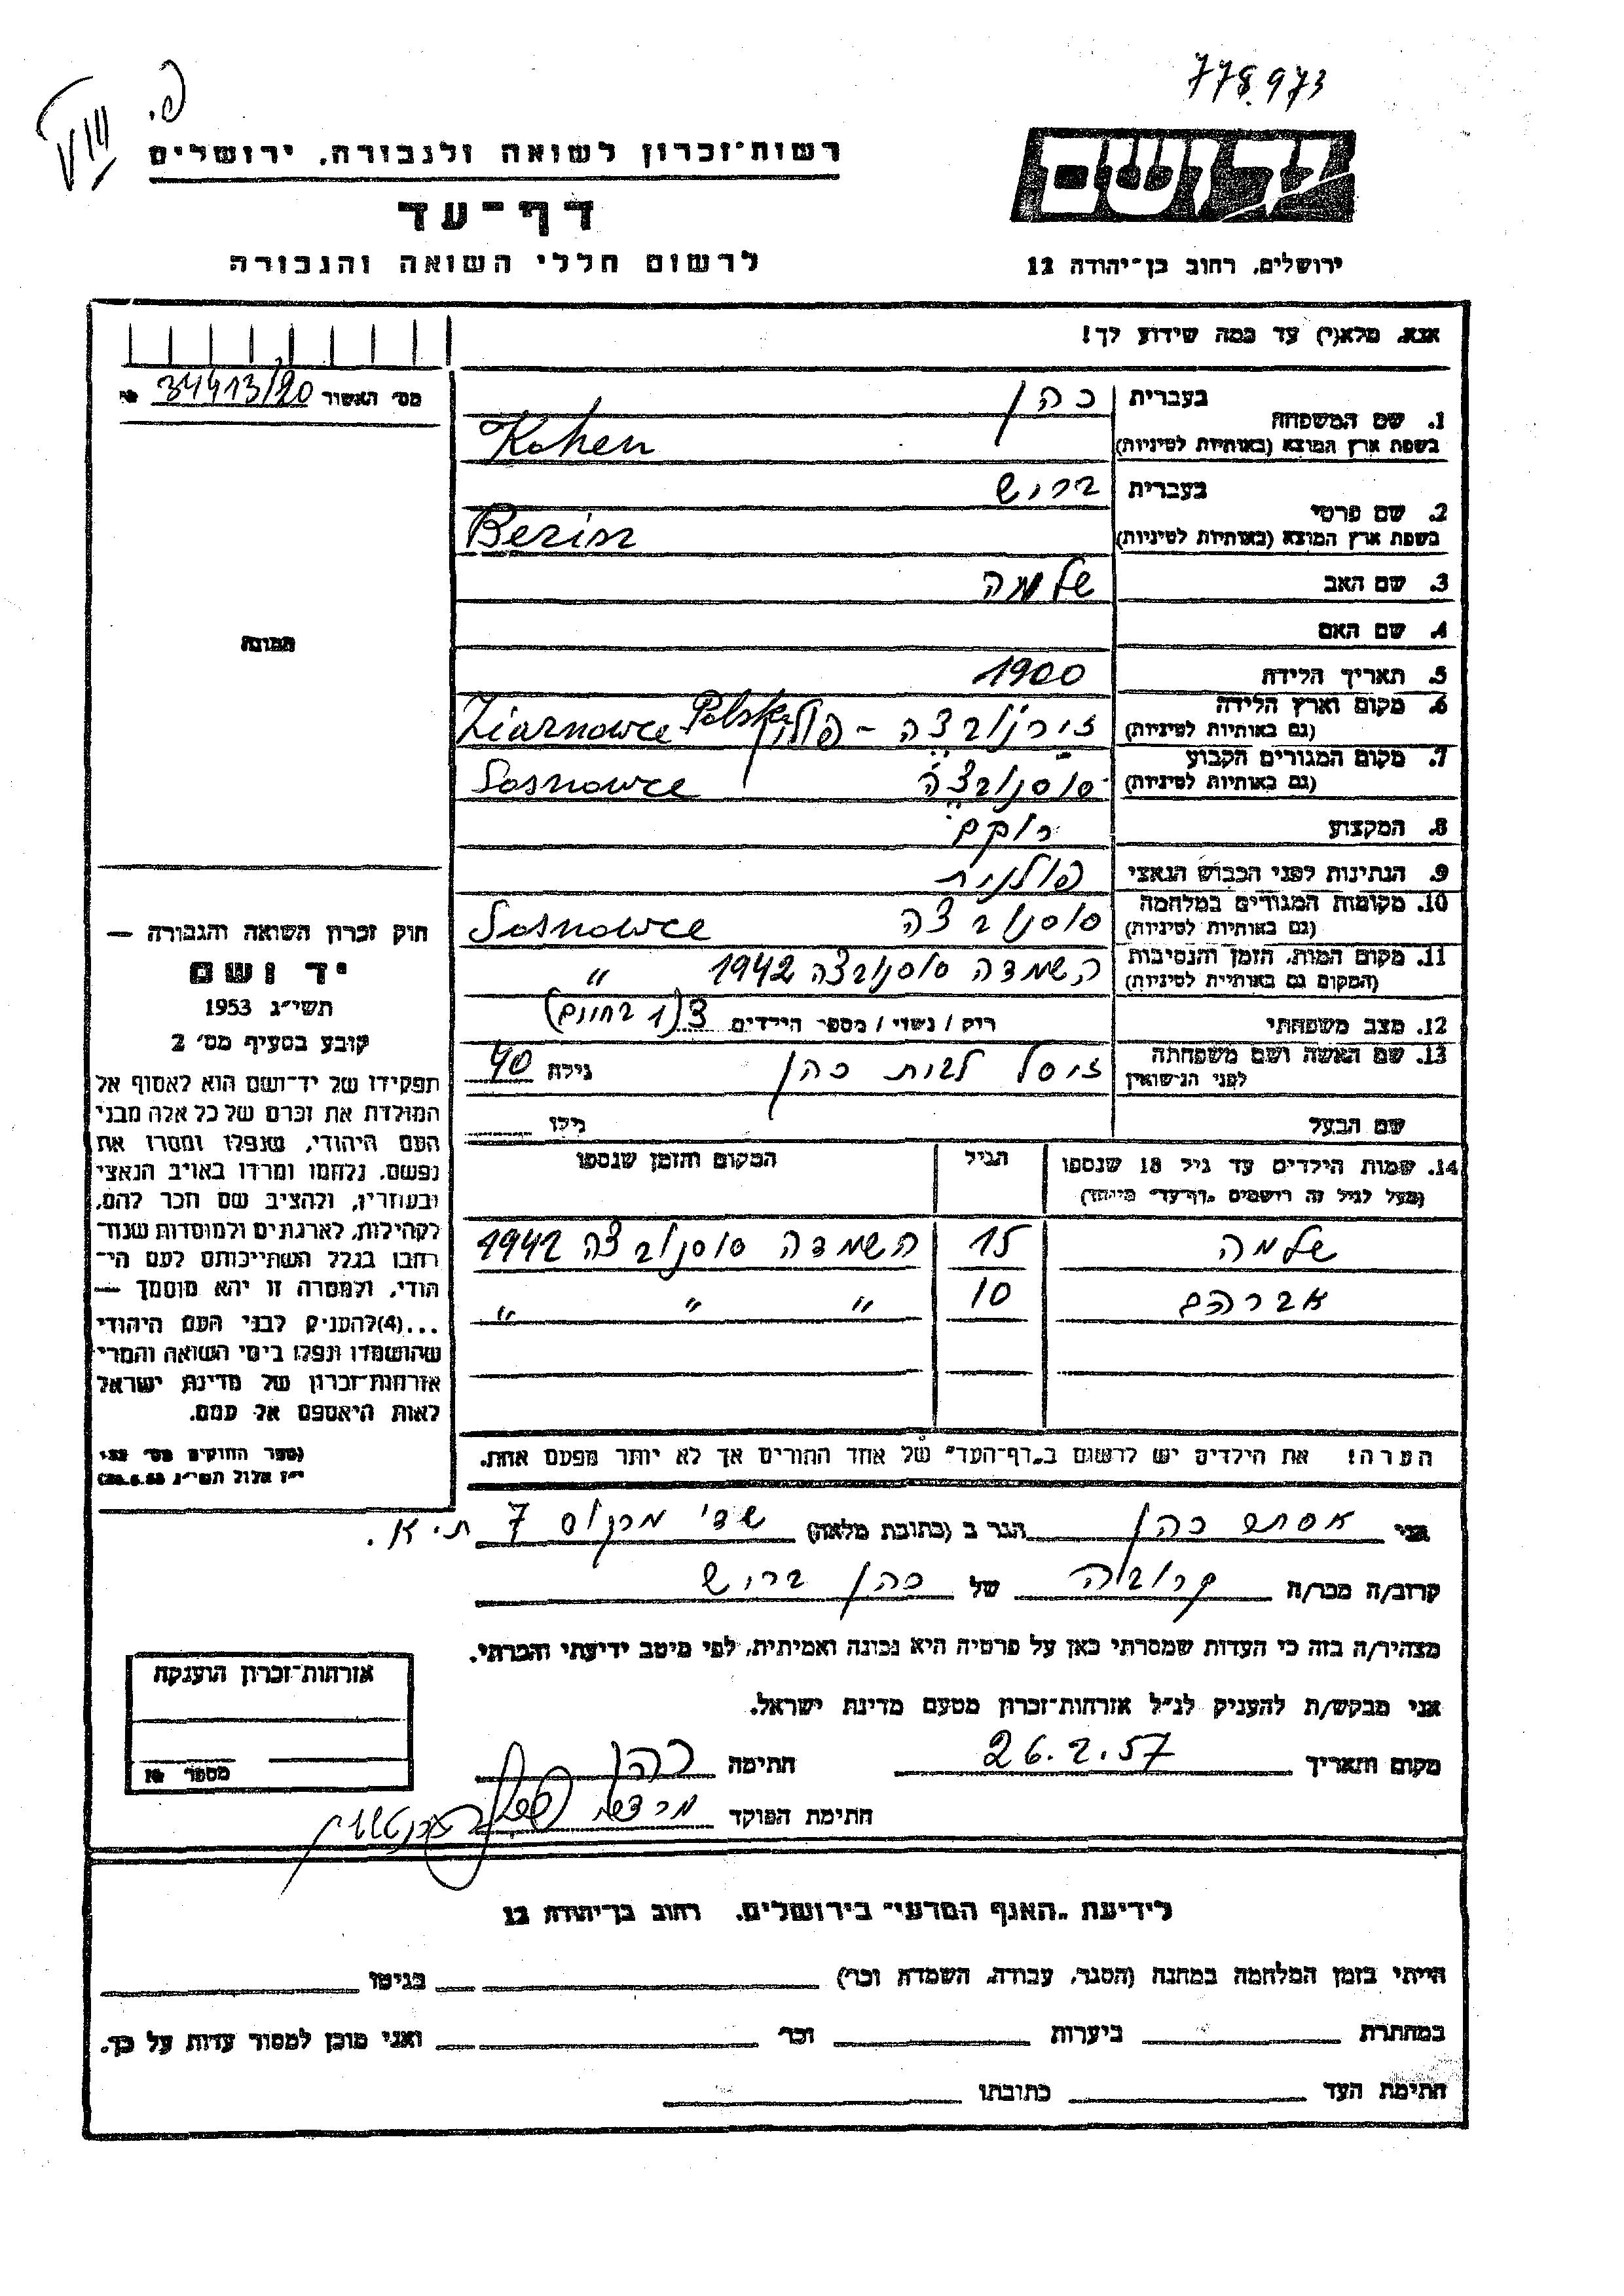 778.973
פ.
רשות־זכרון לשואה ולגבורה, ירושלים
דף־עד
לרשום חללי השואה והגבורה
יד ושם
ירושלים, רחוב בן־יהודה 12
אנא, מלא(י) עד כמה שידוע לך!
מס׳ האשור 34413/20 №
1. שם המשפחה בעברית כהן
בשפת ארץ המוצא (באותיות לטיניות) Kohen
2. שם פרטי בעברית בריש
בשפת ארץ המוצא (באותיות לטיניות) Berisz
3. שם האב שלמה
4. שם האם
5. תאריך הלידה 1900
6. מקום וארץ הלידה
(גם באותיות לטיניות) זירנובצה - פולין Ziarnowce Polska
7. מקום המגורים הקבוע
(גם באותיות לטיניות) סוסנובצה Sosnowce
8. המקצוע רוקם
9. הנתינות לפני הכבוש הנאצי פולנית
10. מקומות המגורים במלחמה
(גם באותיות לטיניות) סוסנובצה Sosnowce
11. מקום המות, הזמן והנסיבות
(המקום גם באותיות לטיניות) השמדה סוסנובצה 1942 "
12. מצב משפחתי רוק / נשוי / מספר הילדים 3 (1 בחיים)
13. שם האשה ושם משפחתה
לפני הנישואין זיסל לבית כהן גילה 40
שם הבעל גילו
14. שמות הילדים עד גיל 18 שנספו
(מעל לגיל זה רושמים „דף־עד״ מיוחד)
הגיל
המקום והזמן שנספו
שלמה 15 השמדה סוסנובצה 1942
אברהם 10 " " "
הערה! את הילדים יש לרשום ב„דף־העד״ של אחד ההורים אך לא יותר מפעם אחת.
תמונה
חוק זכרון השואה והגבורה —
יד ושם
תשי״ג 1953
קובע בסעיף מס׳ 2
תפקידו של יד־ושם הוא לאסוף אל
המולדת את זכרם של כל אלה מבני
העם היהודי, שנפלו ומסרו את
נפשם, נלחמו ומרדו באויב הנאצי
ובעוזריו, ולהציב שם וזכר להם,
לקהילות, לארגונים ולמוסדות שנח־
רבו בגלל השתייכותם לעם הי־
הודי, ולמטרה זו יהא מוסמך —
...(4)להעניק לבני העם היהודי
שהושמדו ונפלו בימי השואה והמרי
אזרחות־זכרון של מדינת ישראל
לאות היאספם אל עמם.
(ספר החוקים מס׳ 132
י״ז אלול תשי״ג 28.8.53)
אני אסתר כהן הגר ב (כתובת מלאה) שד׳ מרקוס 7 ת.א.
קרוב/ה מכר/ה קרובה של כהן בריש
מצהיר/ה בזה כי העדות שמסרתי כאן על פרטיה היא נכונה ואמיתית, לפי מיטב ידיעתי והכרתי.
אני מבקש/ת להעניק לנ״ל אזרחות־זכרון מטעם מדינת ישראל.
מקום ותאריך 26.2.57 חתימה כהן
חתימת הפוקד מרדכי
אזרחות־זכרון הוענקה
מספר №
לידיעת „האגף המדעי״ בירושלים, רחוב בן־יהודה 12
הייתי בזמן המלחמה במחנה (הסגר, עבודה, השמדה וכו׳) בגיטו
במחתרת ביערות וכו׳ ואני מוכן למסור עדות על כך.
חתימת העד כתובתו